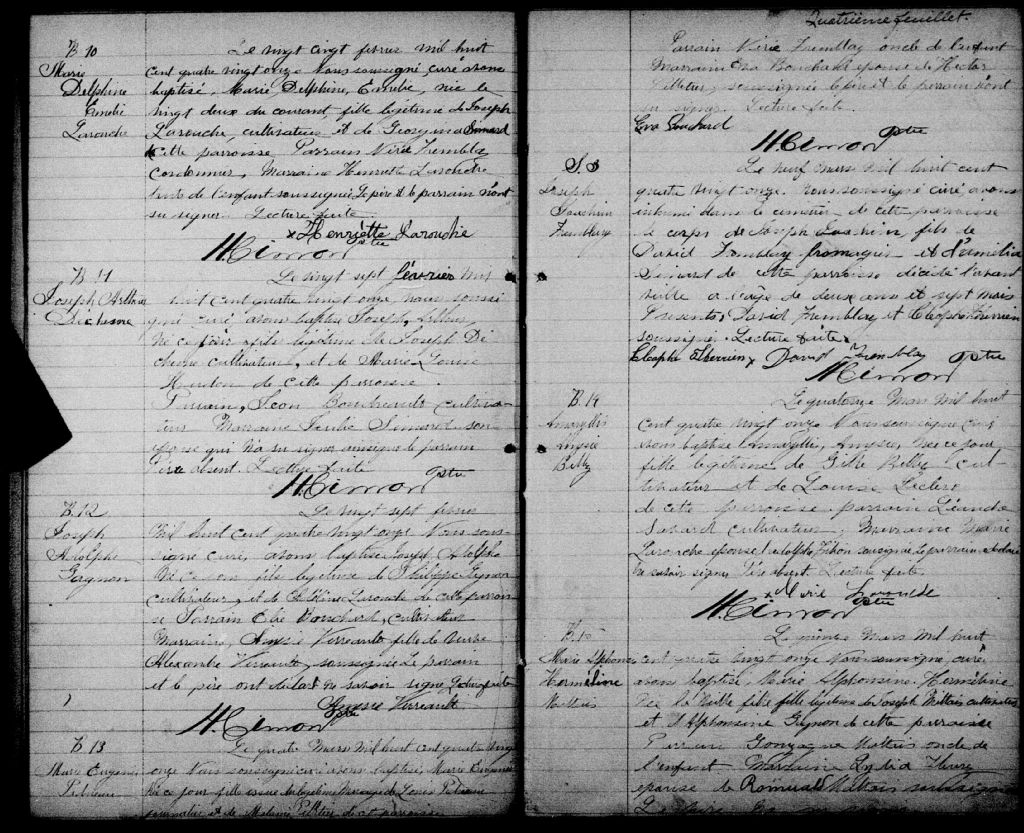 B. 10
Marie
Delphine
Emélie
Larouche
Le vingt cinq février mil huit
cent quatre vingt onze Nous soussigné curé avons
baptisé, Marie Delphine, Emélie, née le
vingt deux du courant, fille légitime de Joseph
Larouche, cultivateur et de Georgina Simard
de cette paroisse Parrain Tremblay
Cordonnier, Marraine Henriette Larouche
tante de l'enfant soussignée Le père et le parrain n'ont
su signer. Lecture faite
x Henriette Larouche
ptre
B 11
Joseph Arthur
Dechesne
Le vingt sept février mil
huit cent quatre vingt onze nous soussi
gné curé avons baptisé Joseph, Arthur,
né ce jour fils légitime de Joseph De
chesne cultivateur, et de Marie Louise
Hudon de cette paroisse.
Parrain, Léon Bouchard cultiva-
teur Marraine Simard son
épouse qui n'a su signer ainsi que le parrain
Père absent. Lecture faite
ptre
B. 12
Joseph
Adolphe
Gagnon
Le vingt sept février
Mil huit cent quatre vingt onze Nous sous-
signé curé, avons baptisé Joseph, Adolphe
né ce jour fils légitime de Philippe Gagnon
cultivateur, et de Larouche de cette parois-
se Parrain Elie Bouchard, cultivateur
Marraine, Verreault fille de
Alexandre Verreault, soussignée Le parrain
et le père ont déclaré ne savoir signer Lecture faite
Verreault
ptre
B 13
Marie Eugénie
Le quatre Mars mil huit cent quatre vingt
onze Nous soussigné curé avons baptisé, Marie Eugénie
née ce jour fille du légitime mariage de Louis
journalier et de Pelletier de cette paroisse
Quatrième feuillet.
Parrain Tremblay oncle de l'enfant
Marraine Eva Bouchard épouse de Hector
Pelletier, soussignée le père et le parrain n'ont
su signer. Lecture faite
Eva Bouchard
ptre
S. 3
Joseph
Joachim
Tremblay
Le neuf mars mil huit cent
quatre vingt onze. nous soussigné curé avons
inhumé dans le cimetière de cette paroisse
le corps de Joseph Joachim fils de
David Tremblay fromager et d'Amélia
Simard de cette paroisse décédé l'avant
veille à l'âge de deux ans et sept mois
Présents, David Tremblay et Cléophe Therrien
soussignés. Lecture faite.
Cléophe Therrien x David Tremblay ptre
B. 14
Amaryllis
Billy
Le quatorze Mars Mil huit
cent quatre vingt onze Nous soussigné curé
avons baptisé Amaryllis, née ce jour
fille légitime de Billy cul-
tivateur et de Louise Leclerc
de cette paroisse parrain Léandre
Savard cultivateur, Marraine Marie
Larouche épouse d'Adolphe soussignée Le parrain a déclaré
ne savoir signer Père absent. Lecture faite.
x Marie Larouche
ptre
B. 15
Marie Alphonsine
Herméline
Maltais
Le quinze Mars Mil huit
cent quatre vingt onze Nous soussigné, curé
avons baptisé, Marie Alphonsine, Herméline
née la veille fille légitime de Joseph Maltais cultivateur
et d'Alphonsine Gagnon de cette paroisse
Parrain Gonzague Maltais oncle de
l'enfant Marraine Lydia
épouse de Romuald Maltais soussignée